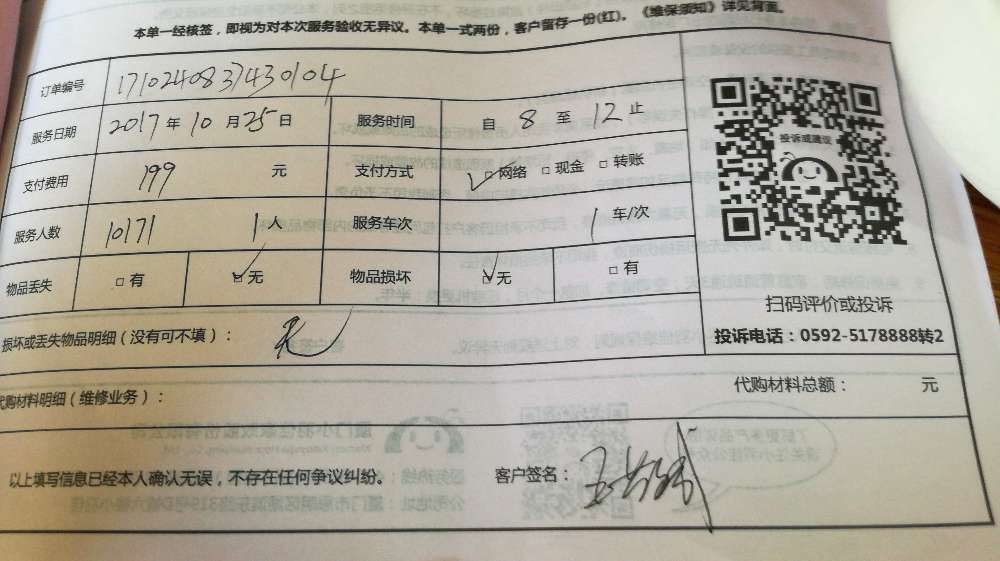 本单一经核签，即视为对本次服务验收无异议。本单一式两份，客户留存一份(红)。《维保须知》详见背面。
订单编号 1710240837430104
服务日期 2017年10月25日 服务时间 自 8 至 12 止
支付费用 199 元 支付方式 ☑网络 □现金 □转账
服务人数 10171 1人 服务车次 1 车/次
物品丢失 □有 ☑无 物品损坏 ☑无 □有
投诉或建议
扫码评价或投诉
投诉电话：0592-5178888转2
损坏或丢失物品明细（没有可不填）： 无
代购材料明细（维修业务）：
代购材料总额： 元
以上填写信息已经本人确认无误，不存在任何争议纠纷。 客户签名：